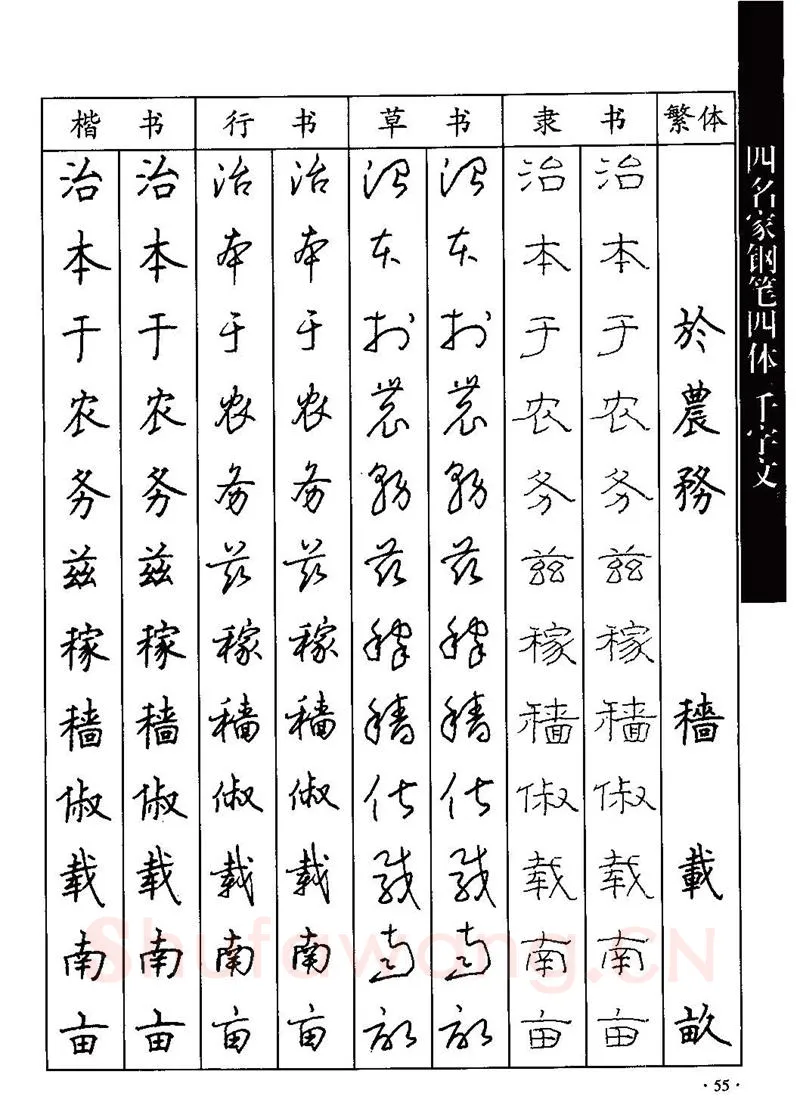 四名家钢笔四体 千字文
楷书 行书 草书 隶书 繁体
治本于农务兹稼穑俶载南亩
治本于农务兹稼穑俶载南亩
治本于农务兹稼穑俶载南亩
治本于农务兹稼穑俶载南亩
治本於農務兹稼穡俶載南畝
治本於農務兹稼穡俶載南畝
治本于农务兹稼穑俶载南亩
治本于农务兹稼穑俶载南亩
於農務穡載畝
Shufawang.CN
·55·